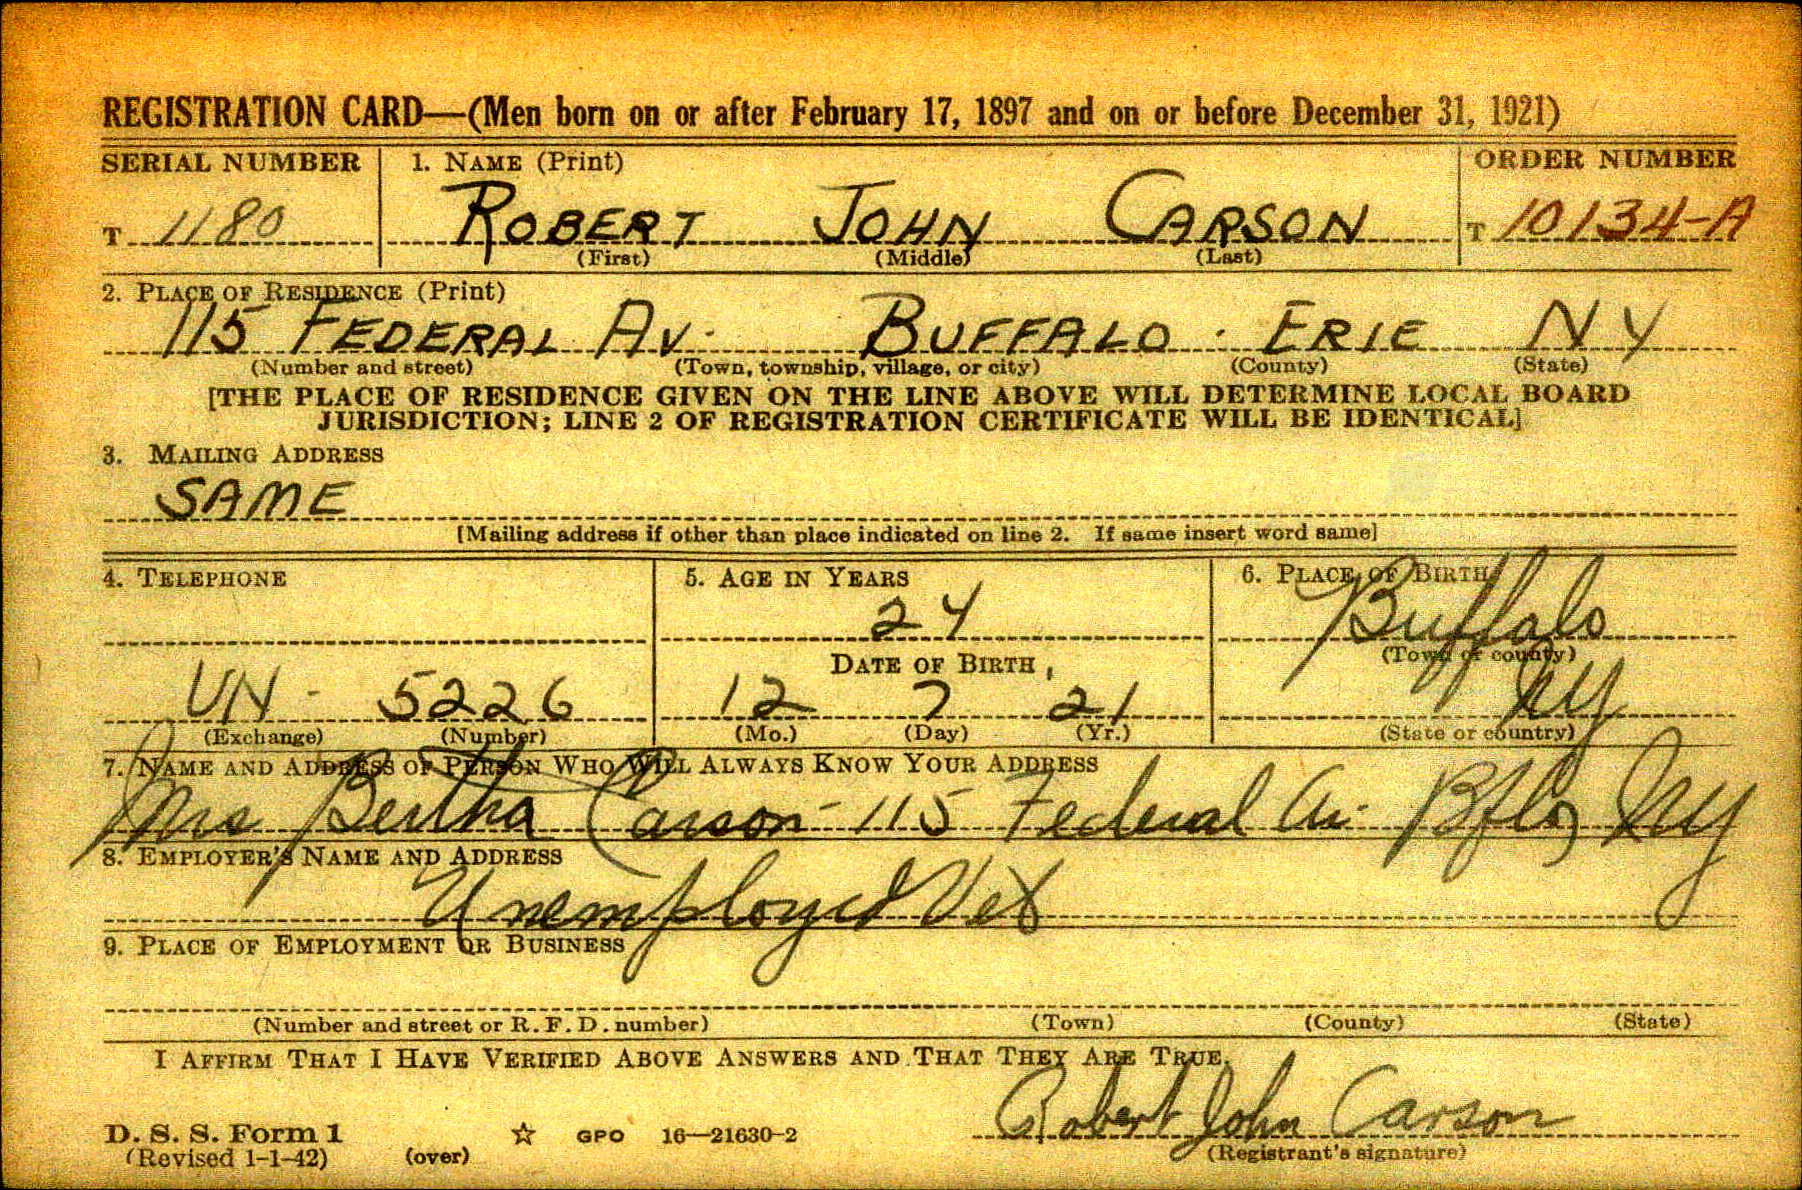 REGISTRATION CARD—(Men born on or after February 17, 1897 and on or before December 31, 1921)
SERIAL NUMBER 1. NAME (Print) ORDER NUMBER
T 1180 ROBERT JOHN CARSON T 10134-A
(First) (Middle) (Last)
2. PLACE OF RESIDENCE (Print)
115 FEDERAL AV. BUFFALO . ERIE NY
(Number and street) (Town, township, village, or city) (County) (State)
[THE PLACE OF RESIDENCE GIVEN ON THE LINE ABOVE WILL DETERMINE LOCAL BOARD
JURISDICTION; LINE 2 OF REGISTRATION CERTIFICATE WILL BE IDENTICAL]
3. MAILING ADDRESS
SAME
[Mailing address if other than place indicated on line 2. If same insert word same]
4. TELEPHONE 5. AGE IN YEARS 6. PLACE OF BIRTH
24 Buffalo
DATE OF BIRTH (Town or county)
UN - 5226 12 7 21 NY
(Exchange) (Number) (Mo.) (Day) (Yr.) (State or country)
7. NAME AND ADDRESS OF PERSON WHO WILL ALWAYS KNOW YOUR ADDRESS
Mrs Bertha Carson - 115 Federal Av. Bflo, NY
8. EMPLOYER'S NAME AND ADDRESS
Unemployed Vet
9. PLACE OF EMPLOYMENT OR BUSINESS
(Number and street or R. F. D. number) (Town) (County) (State)
I AFFIRM THAT I HAVE VERIFIED ABOVE ANSWERS AND THAT THEY ARE TRUE.
Robert John Carson
D. S. S. Form 1 ☆ GPO 16—21630-2
(Revised 1-1-42) (over) (Registrant's signature)